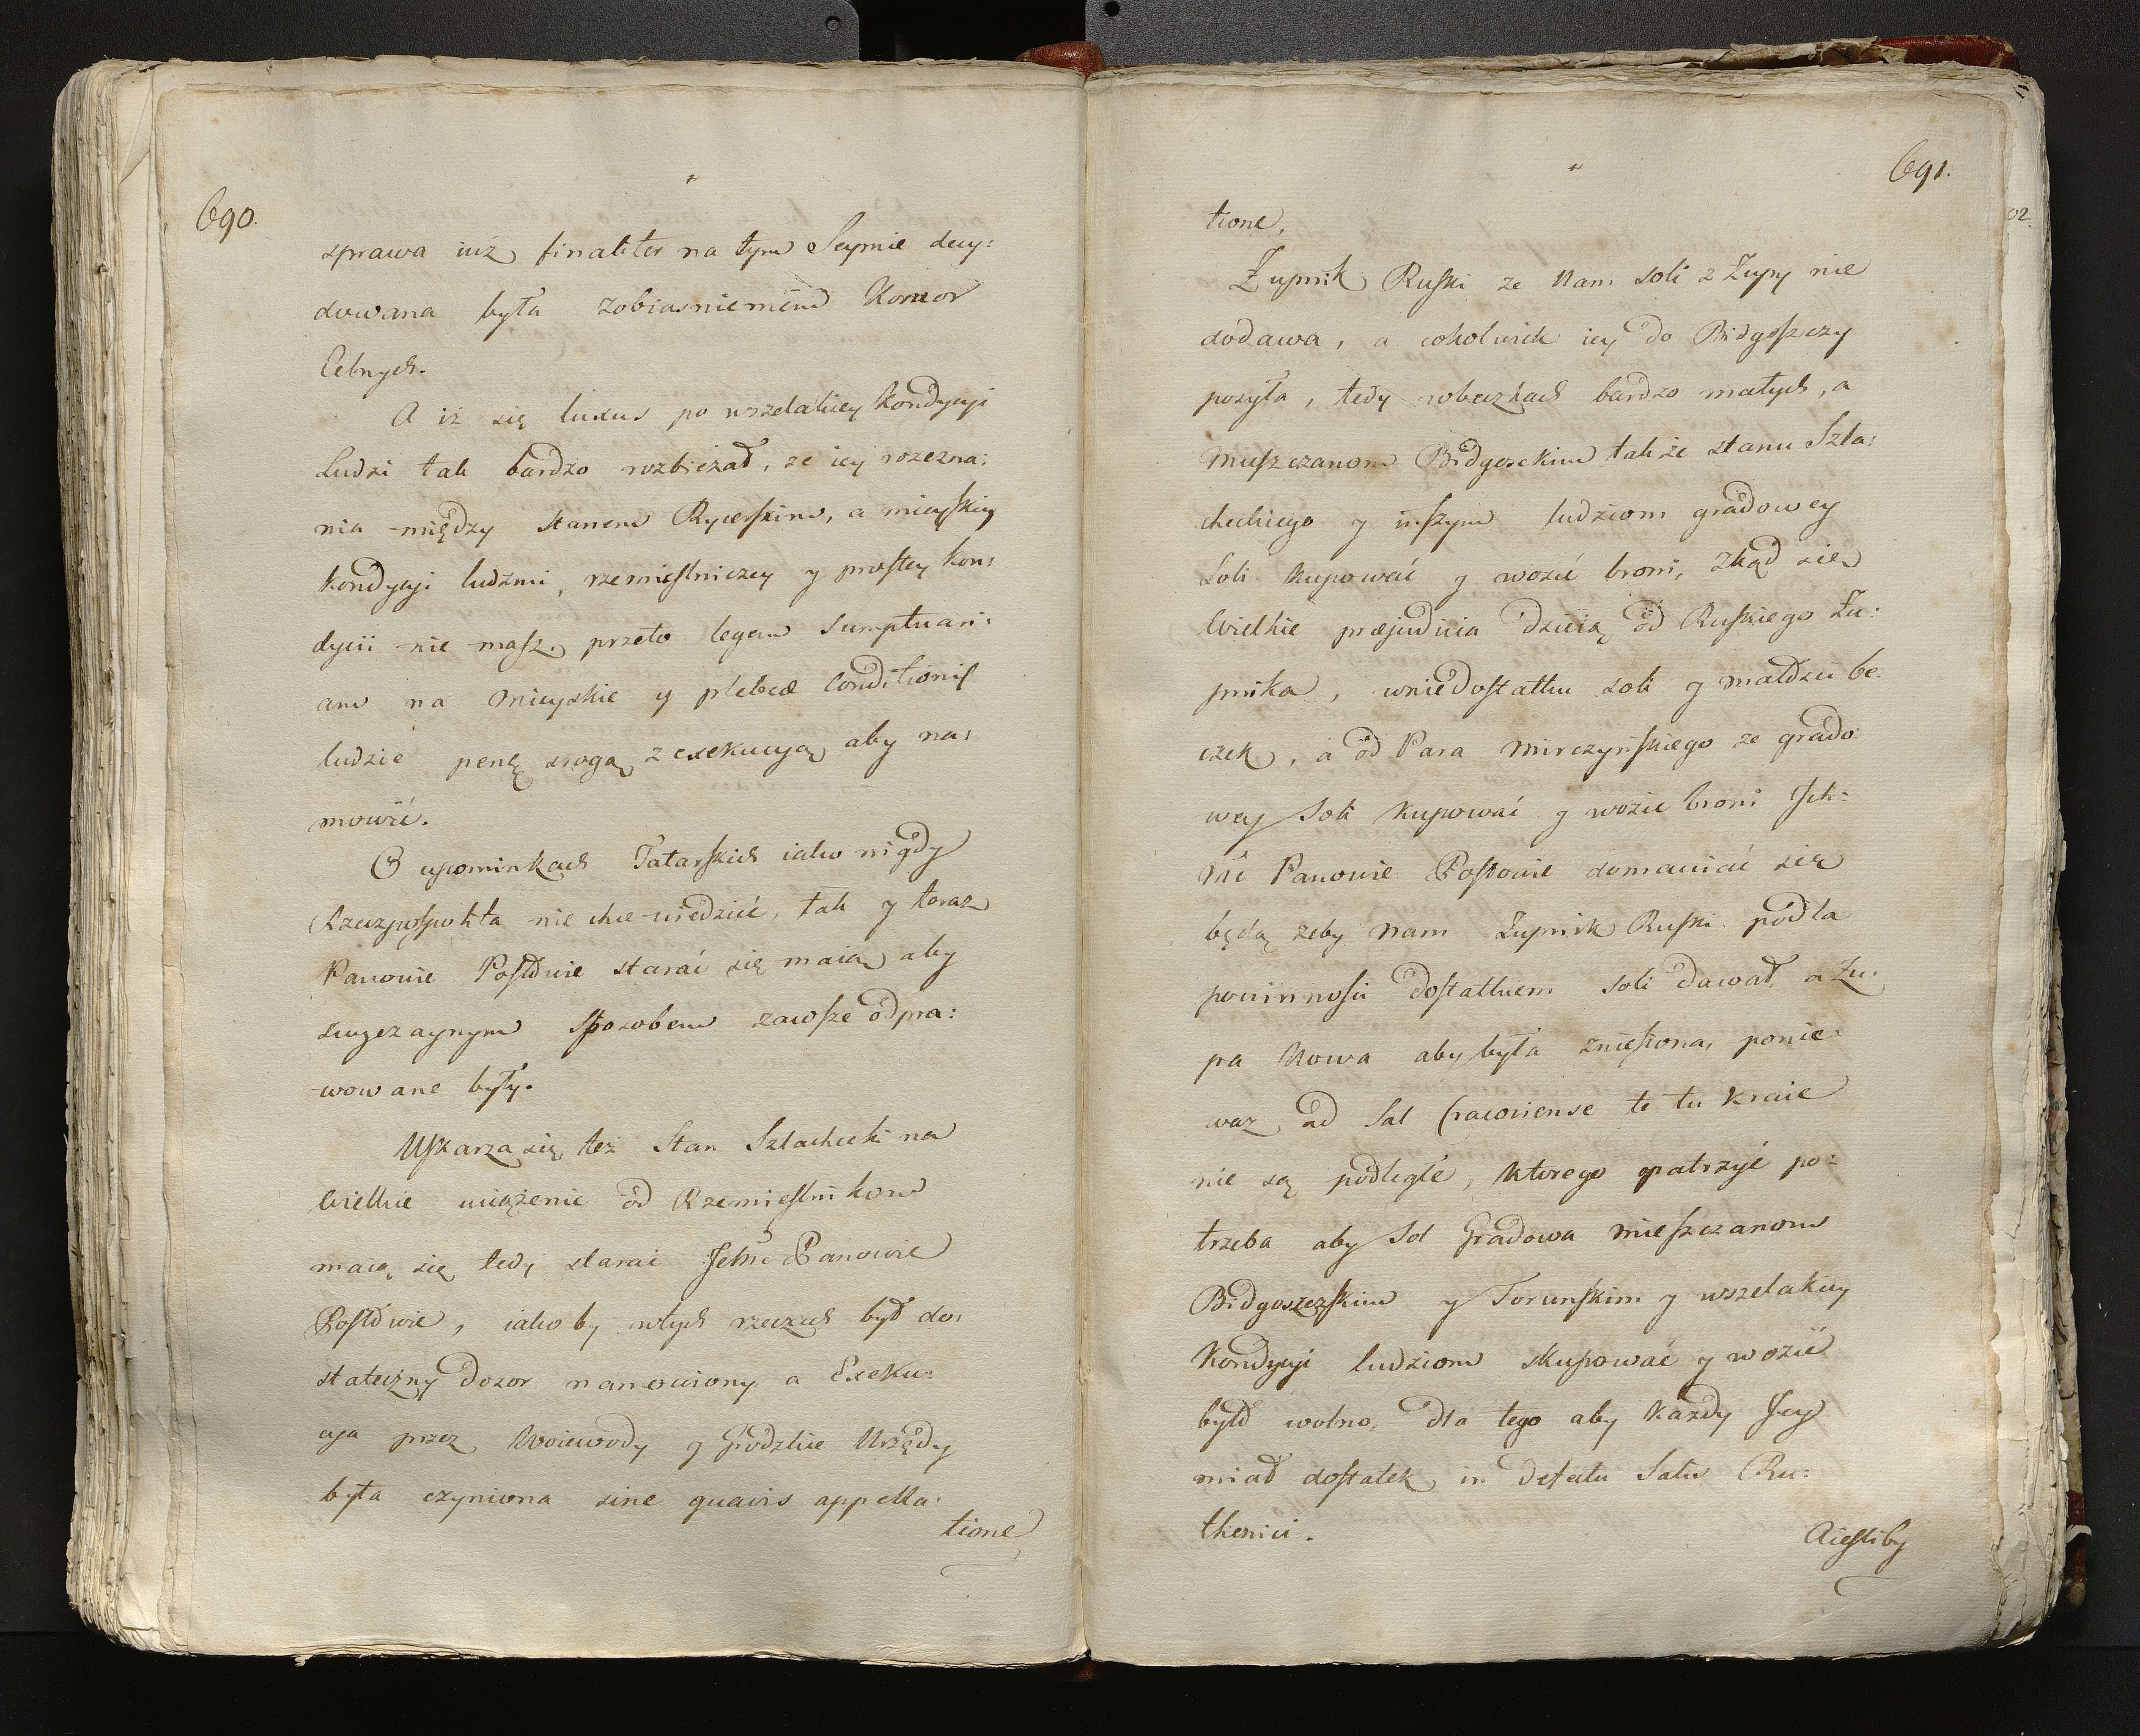 690.
sprawa iuż finaliter na tym Seymie decy:
dowana była zobiasnieniem Komor
Celnych.
A iż się luxus po wszelakiey Kondycyi
Ludzi tak bardzo rozbieżał, ze iey rozezna:
nia między stanem Rycerskim, a mieyskiey
kondycyi ludźmi, rzemieslniczey y prostey kon:
dycii nie masz, przeto legem sumptuari:
am na Mieyskie y plebeæ Conditionis
ludzie penę srogą z exekucyą aby na:
mowić.
O upominkach Tatarskich iako nigdy
Rzeczpospolita nie chce wiedzieć, tak y teraz
Panowie Posłowie starać się maią aby
zwyczaynym sposobem zawsze odpra:
wowane były.
Uskarza się też Stan Szlachecki na
Wielkie uciążenie od Rzemieslnikow
maią się tedy starać Ichmć Panowie
Posłowie, iako by wtych rzeczach był do:
stateczny Dozor namowiony a Exeku:
cya przez Woiewody y Grodzkie Urzędy
była czyniona sine quavis appella:
tione
691.
tione.
Żupnik Ruski ze Nam soli z Żupy nie
dodawa, a cokolwiek iey do Bidgoszczy
posyła, tedy wbeczkach bardzo małych, a
Mieszczanom Bidgosckim także stanu Szla:
checkiego y inszym ludziom gradowey
Soli Kupować y wozić broni, Zkąd się
Wielkie præjudicia dzieią od Ruskiego Żu:
pnika, wniedostatku soli y małości be:
czek, a od Pana Mirczyńskiego ze grado:
wey Soli Kupować y wozić broni Ich:
Mć Panowie Posłowie domawiać się
będą żeby Nam Żupnik Ruski podla
powinnosci dostatkiem soli dawał, a Żu:
pa Nowa aby była zniesiona, ponie:
waz ad Sal Cracoviense te tu Kraie
nie są podległe, Ktorego opatrzyć po:
trzeba aby Sol Gradowa Mieszczanom
Bidgoszczskim y Torunskim y wszelakiey
Kondycyi ludziom skupować y wozić
było wolno, dla tego aby Każdy Iey
miał dostatek in defectu Salis Ru:
thenici.
Aiesliby